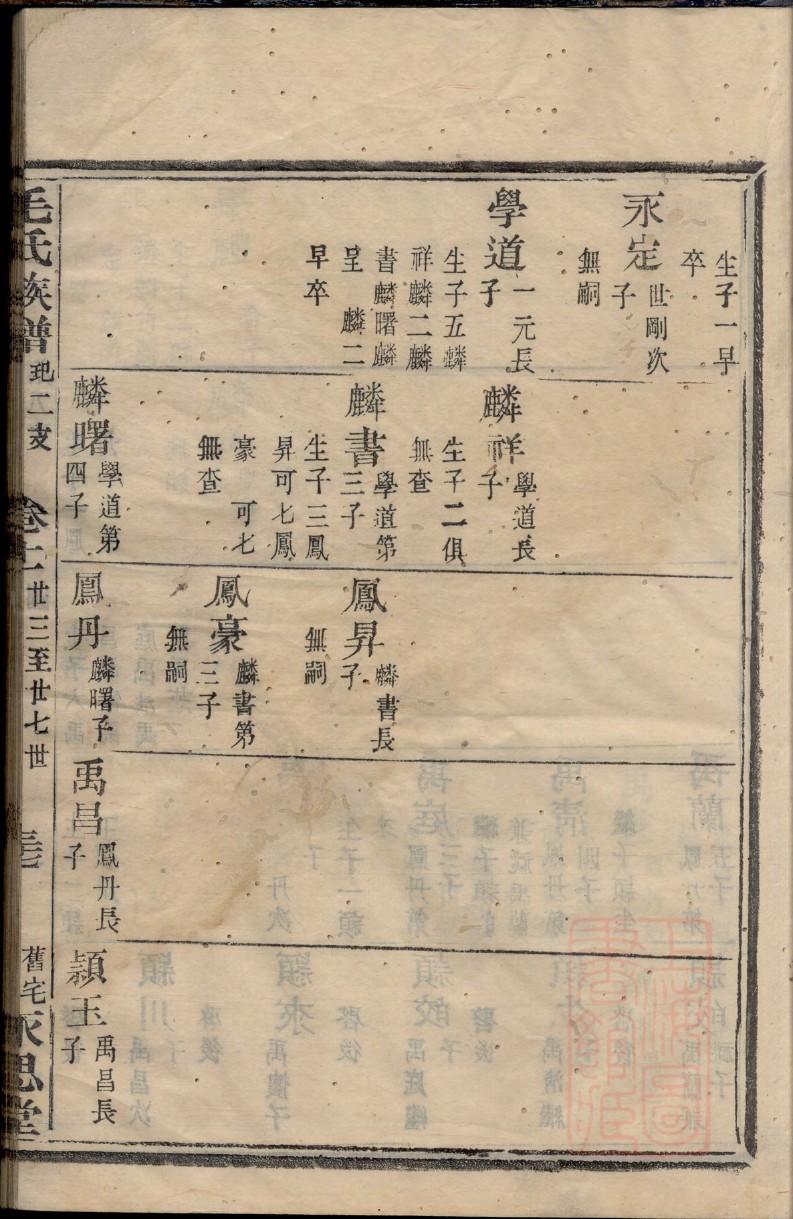 生子一早
卒
永定
世剛次
子
無嗣
學道
一元長
子
生子五麟
祥麟二麟
書麟曙麟
呈 麟二
早卒
麟祥
學道長
子
生子二俱
無查
麟書
學道第
三子
生子三鳳
昇可七鳳
豪 可七
無查
麟曙
學道第
四子
鳳昇
麟書長
子
無嗣
鳳豪
麟書第
三子
無嗣
鳳丹
麟曙子
禹昌
鳳丹長
子
頴玉
禹昌長
子
毛氏族譜
玘二支
卷十
廿三至廿七世
舊宅
永思堂